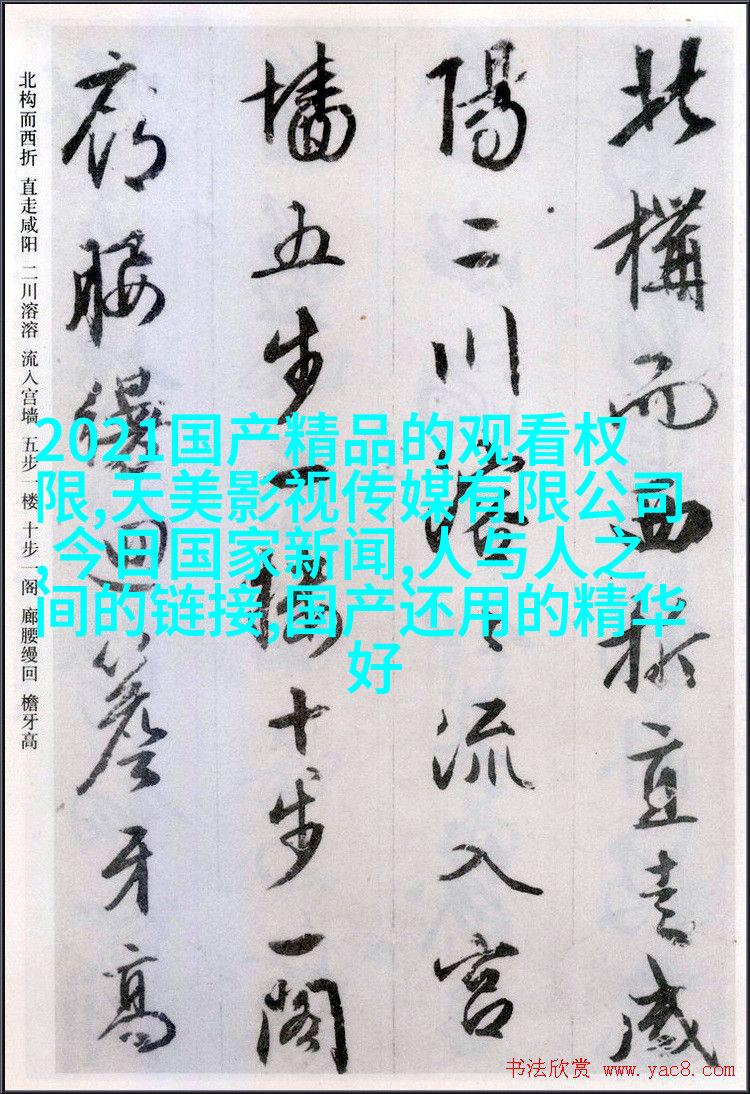 北構而西折直走咸
陽二川溶〻流入宮
墻五步一樓十步一閣
廊腰縵迴簷牙高
北构而西折 直走咸阳 二川溶溶 流入宫墙 五步一楼 十步一阁 廊腰缦回 檐牙高
2021国产精品的观看权
限,天美影视传媒有限公司
,今日国家新闻,人与人之
间的链接,国产还用的精华
好
书法欣赏 www.yac8.com